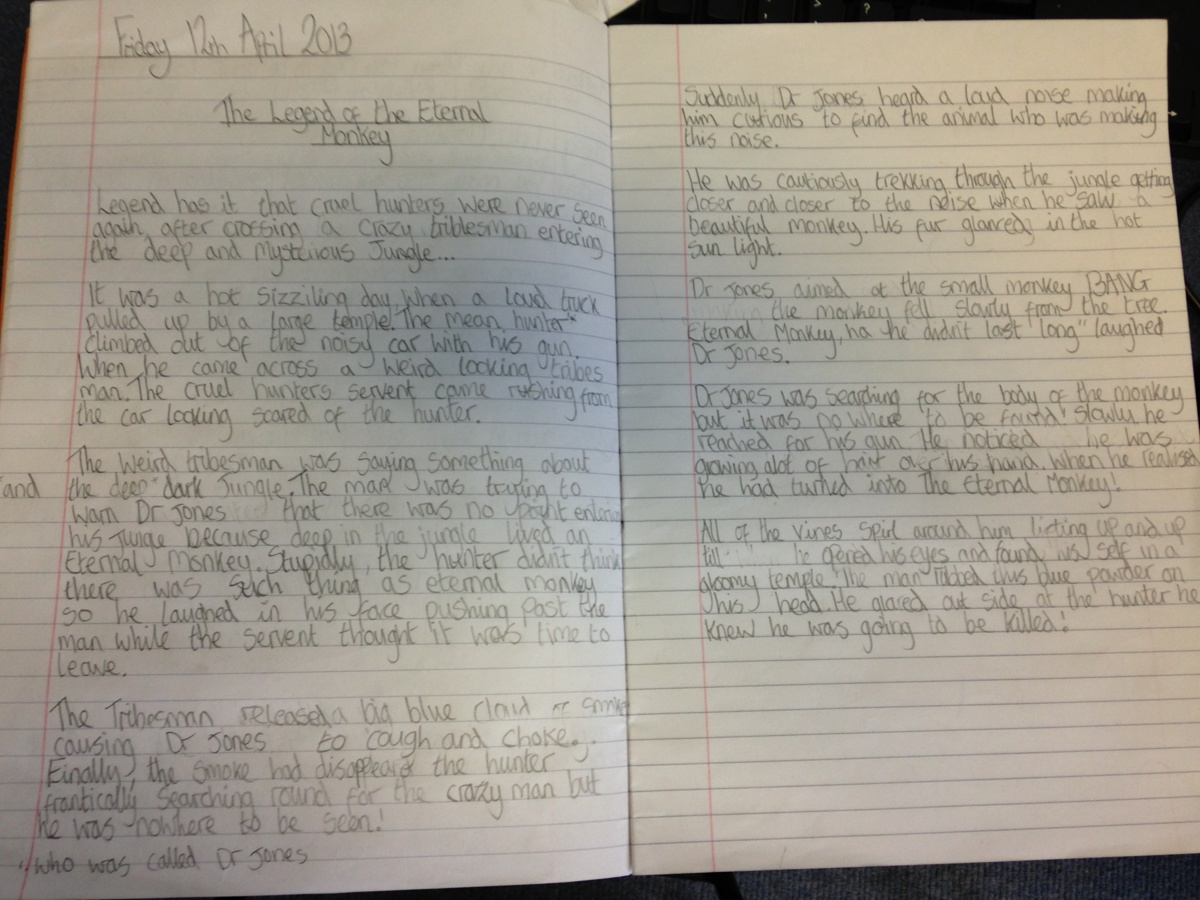 Friday 12th April 2013
The Legend of the Eternal
Monkey
Legend has it that cruel hunters were never seen
again, after crossing a crazy tribesman entering
the deep and mysterious Jungle...
It was a hot sizziling day, when a loud truck
pulled up by a large temple. The mean, hunter*
climbed out of the noisy car with his gun.
When he came across a weird looking tribes
man. The cruel hunters servent came rushing from
the car looking scared of the hunter.
The weird tribesman was saying something about
and the deep dark Jungle. The man was trying to
warn Dr Jones that there was no
his because deep in the jungle lived an
Eternal Monkey. Stupidly, the hunter didn't think
there was such thing as eternal monkey
so he laughed in his face pushing past the
man while the servent thought it was time to
leave.
The Tribesman released a big blue cloud smoke
causing Dr Jones to cough and choke.
Finally, the smoke had disappeared the hunter
frantically searching round for the crazy man but
he was nowhere to be seen!
*who was called Dr Jones
Suddenly Dr Jones heard a loud noise making
him to find the animal who was making
this noise.
He was cautiously trekking through the jungle getting
closer and closer to the noise when he saw a
beautiful monkey. His fur glanced in the hot
sun light.
Dr Jones aimed at the small monkey BANG
the monkey fell slowly from the tree.
Eternal Monkey, ha he didn't last long" laughed
Dr Jones.
Dr Jones was searching for the body of the monkey
but it was no where to be found! Slowly he
reached for his gun. He noticed he was
growing alot of hair over his hand. When he realised
he had turned into The Eternal Monkey!
All of the vines around him lifting up and up
till he opened his eyes and found his self in a
gloomy temple. The man rubbed this blue powder on
his head. He glared out side at the hunter he
knew he was going to be killed!